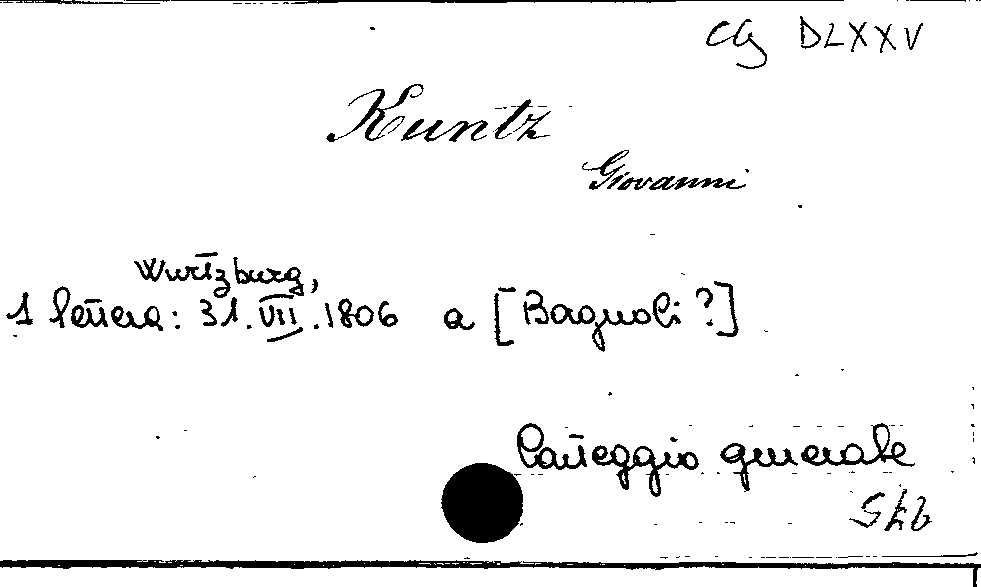 CG DLXXV
Kuntz
Giovanni
Wurtzburg,
1 lettera: 31.VII.1806 a [Bagnoli?]
Carteggio generale
Skb